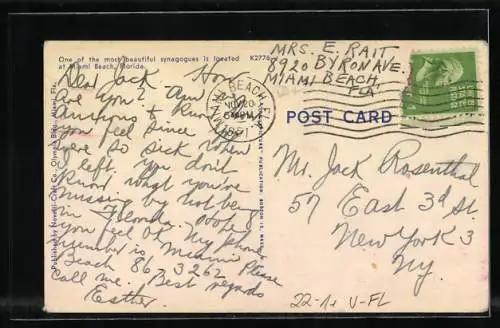 One of the most beautiful synagogues is located
at Miami Beach, Florida.
K2776
Dear Jack How
are you? Am
Anxious to know
you feel since you
were so sick when
I left. you don't
know what you've
missing by not being
in Florida. Hope
you feel OK. My phone
number is Miami
Beach 86-3262 Please
call me. Best regards
Esther.
MIAMI BEACH, FLA.
NOV 20
1951
MRS. E. RAIT
8920 BYRON AVE.
MIAMI BEACH,
FLA
POST CARD
Mr. Jack Rosenthal
57 East 3d St.
New York 3
Ny.
22-11 V-FL
Published by Novelty Craft Co., Olympia Bldg., Miami, Fla.